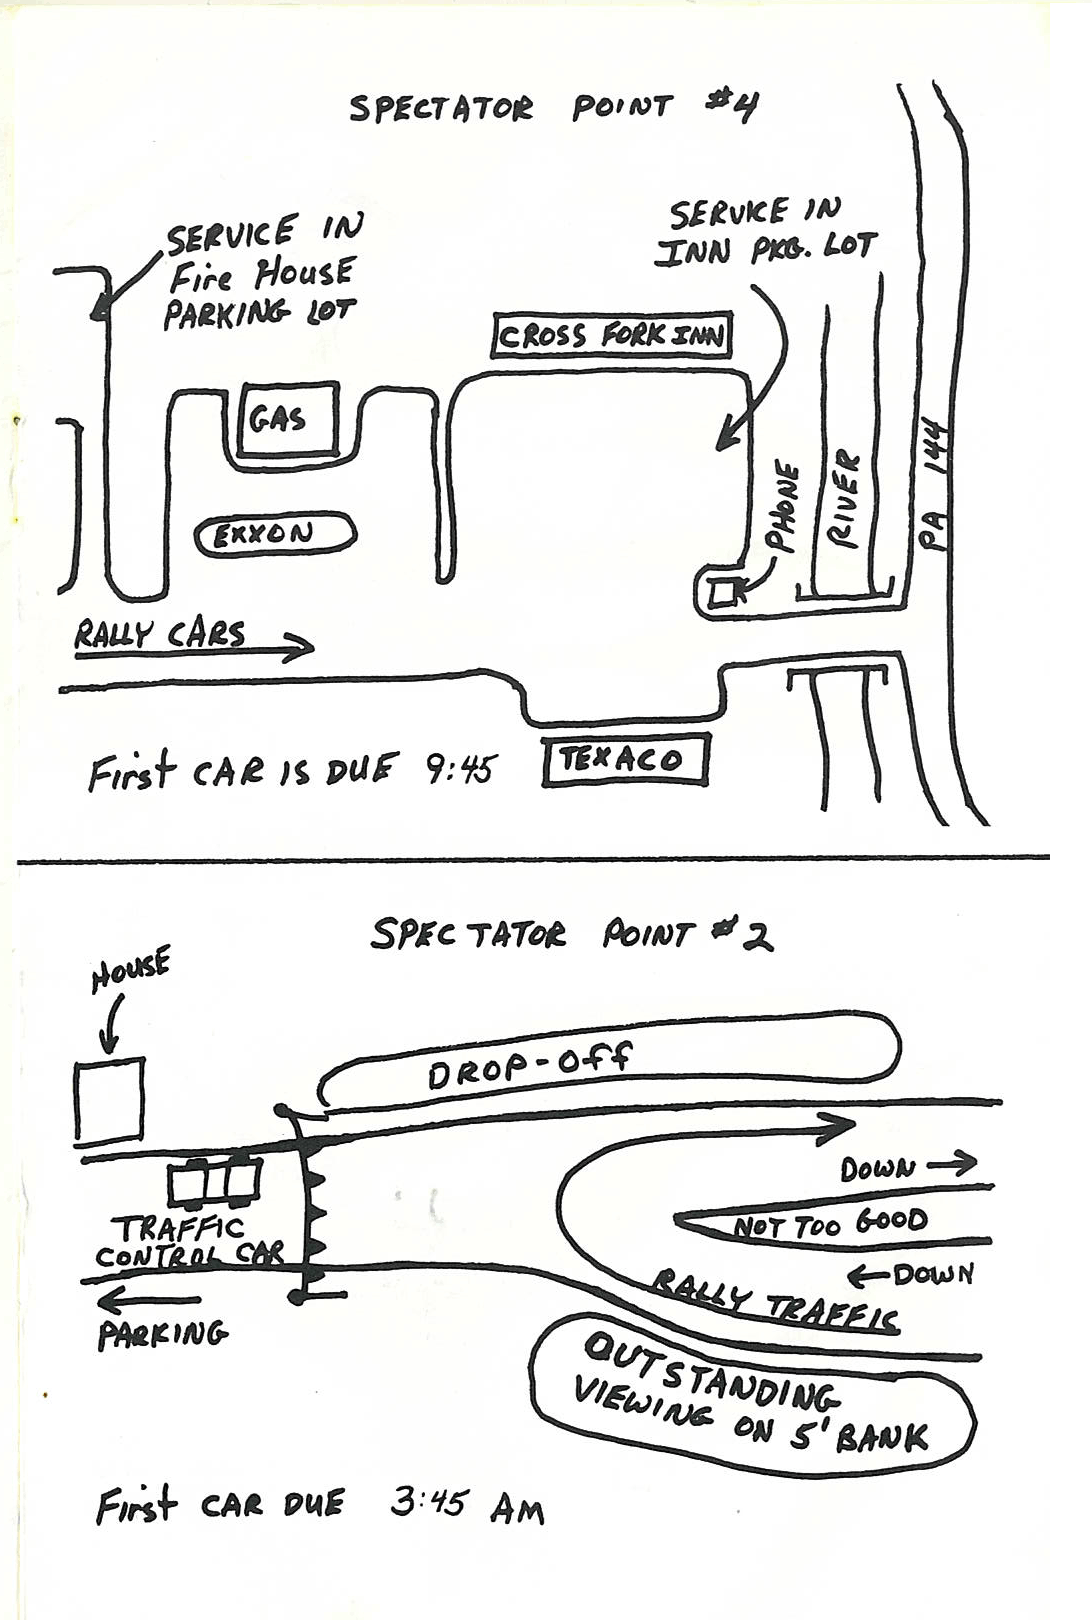 SPECTATOR POINT #4
SERVICE IN
Fire HOUSE
PARKING LOT
SERVICE IN
INN PKG. LOT
CROSS FORK INN
GAS
EXXON
PHONE
RIVER
PA 144
RALLY CARS
First CAR IS DUE 9:45
TEXACO
SPECTATOR POINT #2
HOUSE
DROP-OFF
DOWN
TRAFFIC
CONTROL CAR
NOT TOO GOOD
DOWN
RALLY TRAFFIC
PARKING
OUTSTANDING
VIEWING ON 5' BANK
First CAR DUE 3:45 AM